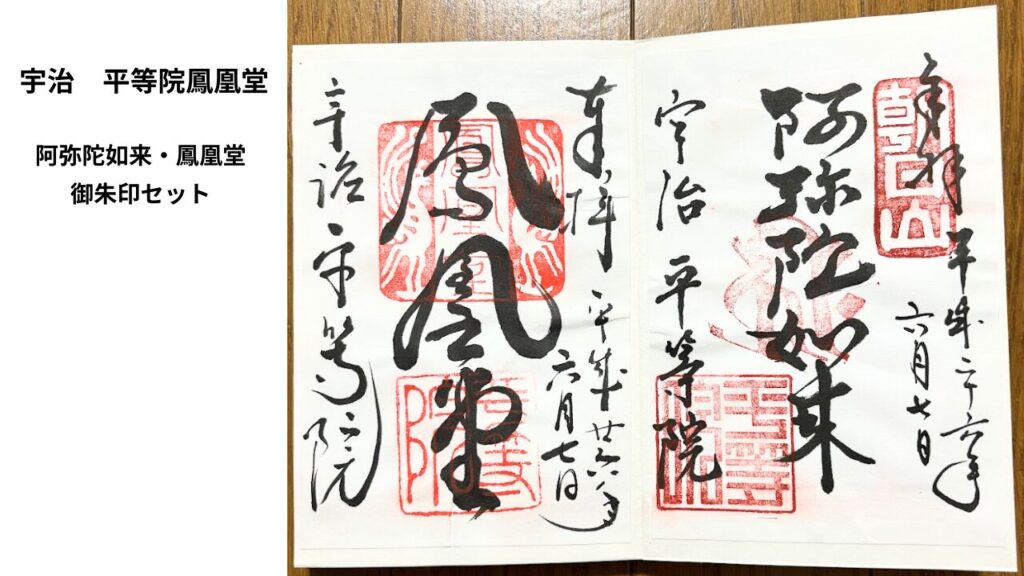 宇治　平等院鳳凰堂
阿弥陀如来・鳳凰堂
御朱印セット
奉拝 平成二十六年
六月七日
朝日山
阿弥陀如来
宇治 平等院
奉拝 平成廿六年
六月七日
鳳凰堂
宇治 平等院